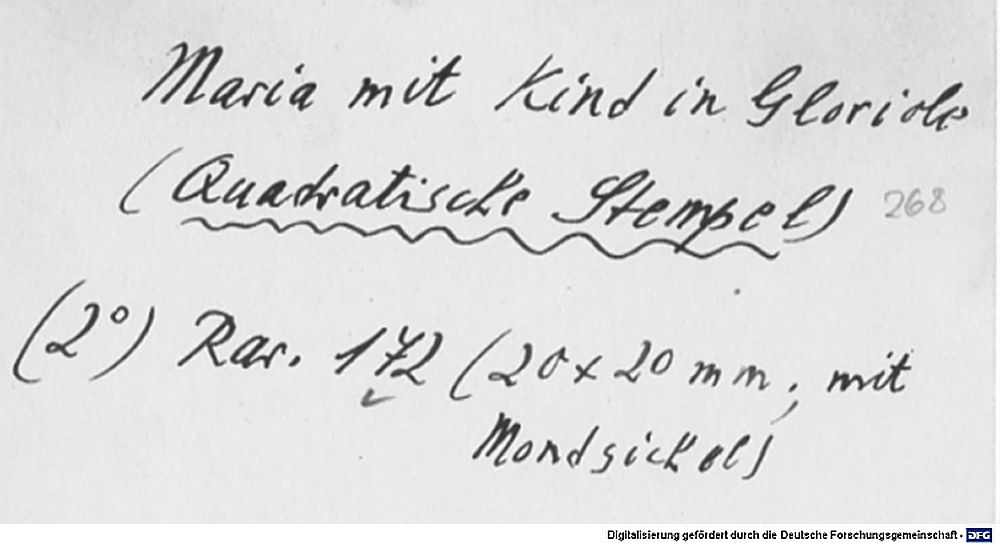 Maria mit Kind in Gloriole
(Quadratische Stempel) 268
(2°) Rar. 172 (20 x 20 mm; mit
Mondsichel)
Digitalisierung gefördert durch die Deutsche Forschungsgemeinschaft - DFG